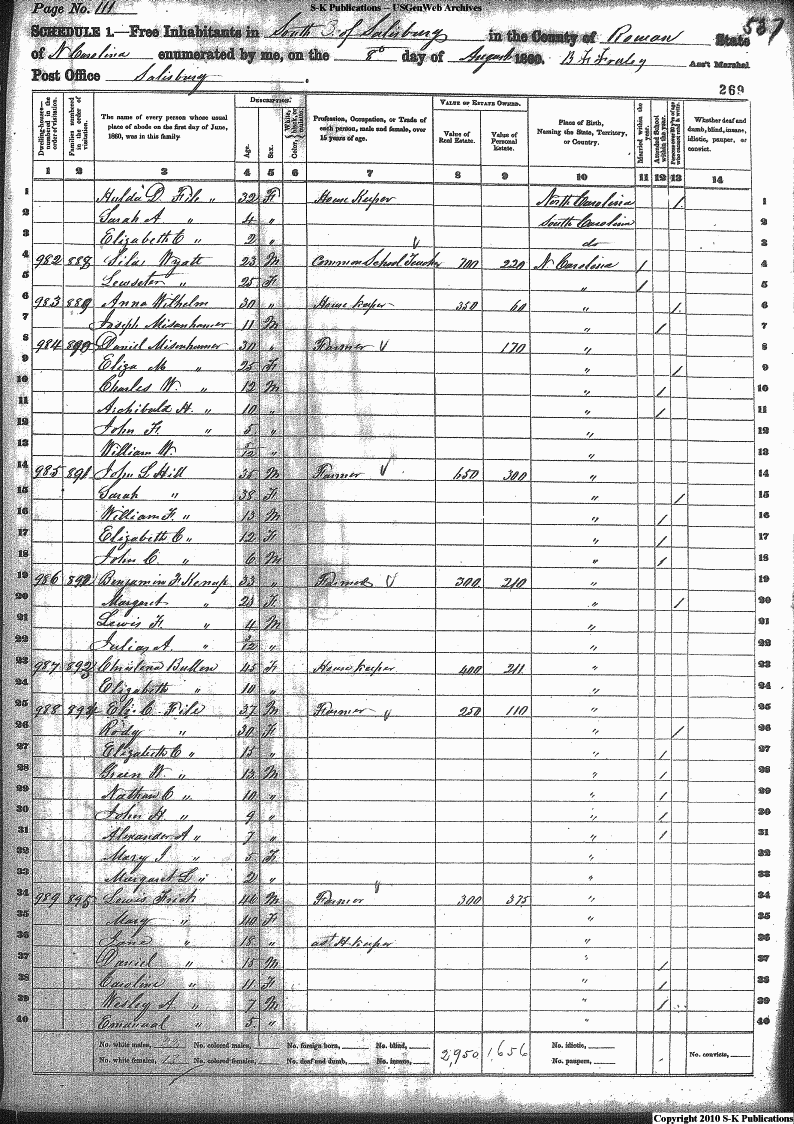 S-K Publications – USGenWeb Archives
Page No. 111
537
SCHEDULE 1.—Free Inhabitants in South S. of Salisbury in the County of Rowan State
of N Carolina enumerated by me, on the 8th day of August 1860. B F Fraley Ass't Marshal
Post Office Salisbury
269
Dwelling-houses—numbered in the order of visitation.
Families numbered in the order of visitation.
The name of every person whose usual place of abode on the first day of June, 1860, was in this family.
DESCRIPTION.
Age.
Sex.
Color, White, black, or mulatto.
Profession, Occupation, or Trade of each person, male and female, over 15 years of age.
VALUE OF ESTATE OWNED.
Value of Real Estate.
Value of Personal Estate.
Place of Birth, Naming the State, Territory, or Country.
Married within the year.
Attended School within the year.
Persons over 20 y'rs of age who cannot read & write.
Whether deaf and dumb, blind, insane, idiotic, pauper, or convict.
1 2 3 4 5 6 7 8 9 10 11 12 13 14
1 Hulda D. File " 32 F House Keeper North Carolina / 1
2 Sarah A " 4 " South Carolina 2
3 Elizabeth C " 2 " do 3
4 982 888 Silas Wyatt 23 M Common School Teacher 700 220 N Carolina / 4
5 25 F " / 5
6 983 889 Anna Wilhelm 30 " House Keeper 350 60 " / 6
7 Joseph Misenhamer 11 M " / 7
8 984 890 Daniel Misenhamer 30 " Farmer 170 " 8
9 Eliza M " 25 F " / 9
10 Charles W. " 12 M " / 10
11 Archibald H. " 10 " " / 11
12 John F. " 5 " " 12
13 William W. 5/12 " " 13
14 985 891 John L Hill 35 M Farmer 650 300 " 14
15 Sarah " 38 F " / 15
16 William F. " 13 M " / 16
17 Elizabeth C " 12 F " / 17
18 John C " 6 M " / 18
19 986 892 Benjamin F. Kenup 33 " Farmer 300 210 " 19
20 Margaret " 23 F " / 20
21 Lewis F. " 4 M " 21
22 Julius A. " /12 " " 22
23 987 893 Christena Bullen 45 F House Keeper 400 211 " 23
24 Elizabeth " 10 " " 24
25 988 894 Eli C. File 37 M Farmer 250 110 " 25
26 Rody " 30 F " / 26
27 Elizabeth C " 15 " " / 27
28 Green W. " 13 M " / 28
29 Nathan C " 10 " " / 29
30 John H " 9 " " / 30
31 Alexander A " 7 " " / 31
32 Mary J " 5 F " 32
33 Margaret L " 2 " " 33
34 989 895 Lewis Frick 46 M Farmer 300 375 " 34
35 Mary " 40 F " 35
36 Jane " 18 " ast H Keeper " 36
37 Daniel " 15 M " / 37
38 Caroline " 11 F " / 38
39 Wesley A " 7 M " / 39
40 Emanual " 5 " " 40
No. white males, No. colored males, No. foreign born, No. blind, 2,950 1,656 No. idiotic, No. convicts,
No. white females, No. colored females, No. deaf and dumb, No. insane, No. paupers,
Copyright 2010 S-K Publications